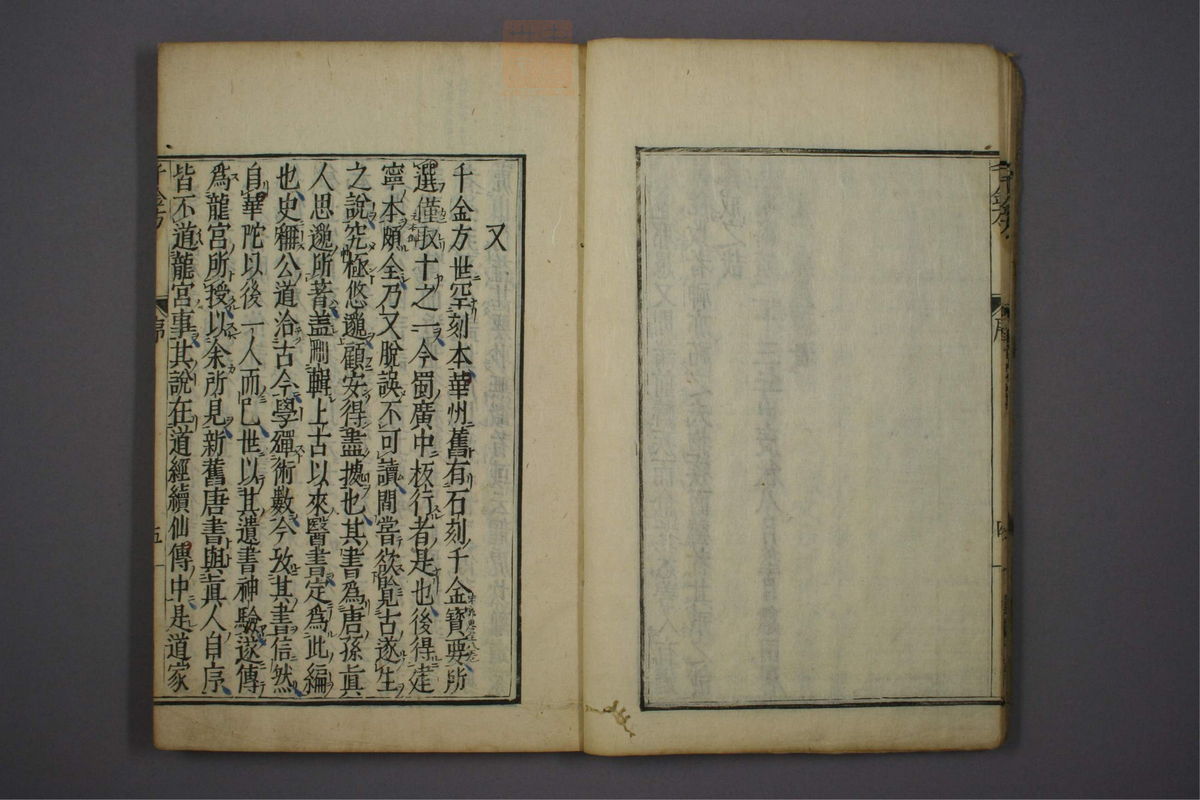 又
千金方世罕刻本華州舊有石刻千金寶要所
選僅取十之一今蜀廣中板行者是也後得建
寧本頗全乃又脫誤不可讀間嘗欲覓古遂生
之說究極悠邈顧安得盡據也其書為唐孫真
人思邈所著盖刪輯上古以來醫書定為此編
也史稱公道洽古今學殫術數今攷其書信然
自華陀以後一人而已世以其遺書神驗遂傳
為龍宮所授以余所見新舊唐書與眞人自序
皆不道龍宮事其說在道經續仙傳中是道家
千金方
序
五